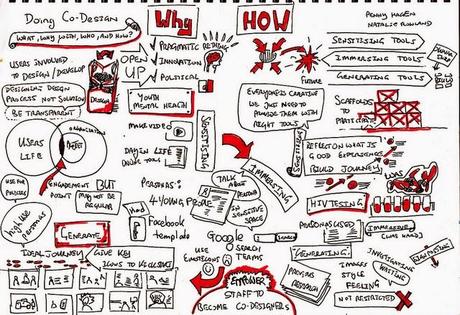 Doing Co-Design
What, why, with, who, and how?
Why
HOW
Penny Hagen
Natalie Rowland
Users involved
to design/develop
Designers design
process not solution
Be transparent
Design
OPEN
UP
Pragmatic
Innovation
Political
Rethink
Future
Sensitising tools
Immersing tools
Generating tools
Youth
Mental Health
Everyone is creative
we just need to
provide them with
right tools
Scaffolds
to
participate
Users
life
Organisation
Engagement
point
BUT
may not be
regular
Make video
Day in life
tools
Sensitising
Immersing
Talk
about
persona
in
sensitive
space
Reflection what is
good experience
Build journey
HIV testing
Personas:
4 young people
Facebook
template
Google
Search
Search
teams
Use
emoticons
Personas used
Immersing
Generating
Generate
Ideal journey
Give key
icons to kickstart
Empower
staff to
become co-designers
Images
style
feeling
Not restricted